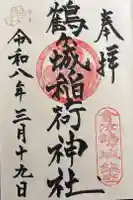 奉拝
鶴ヶ城稲荷神社
令和八年三月十九日